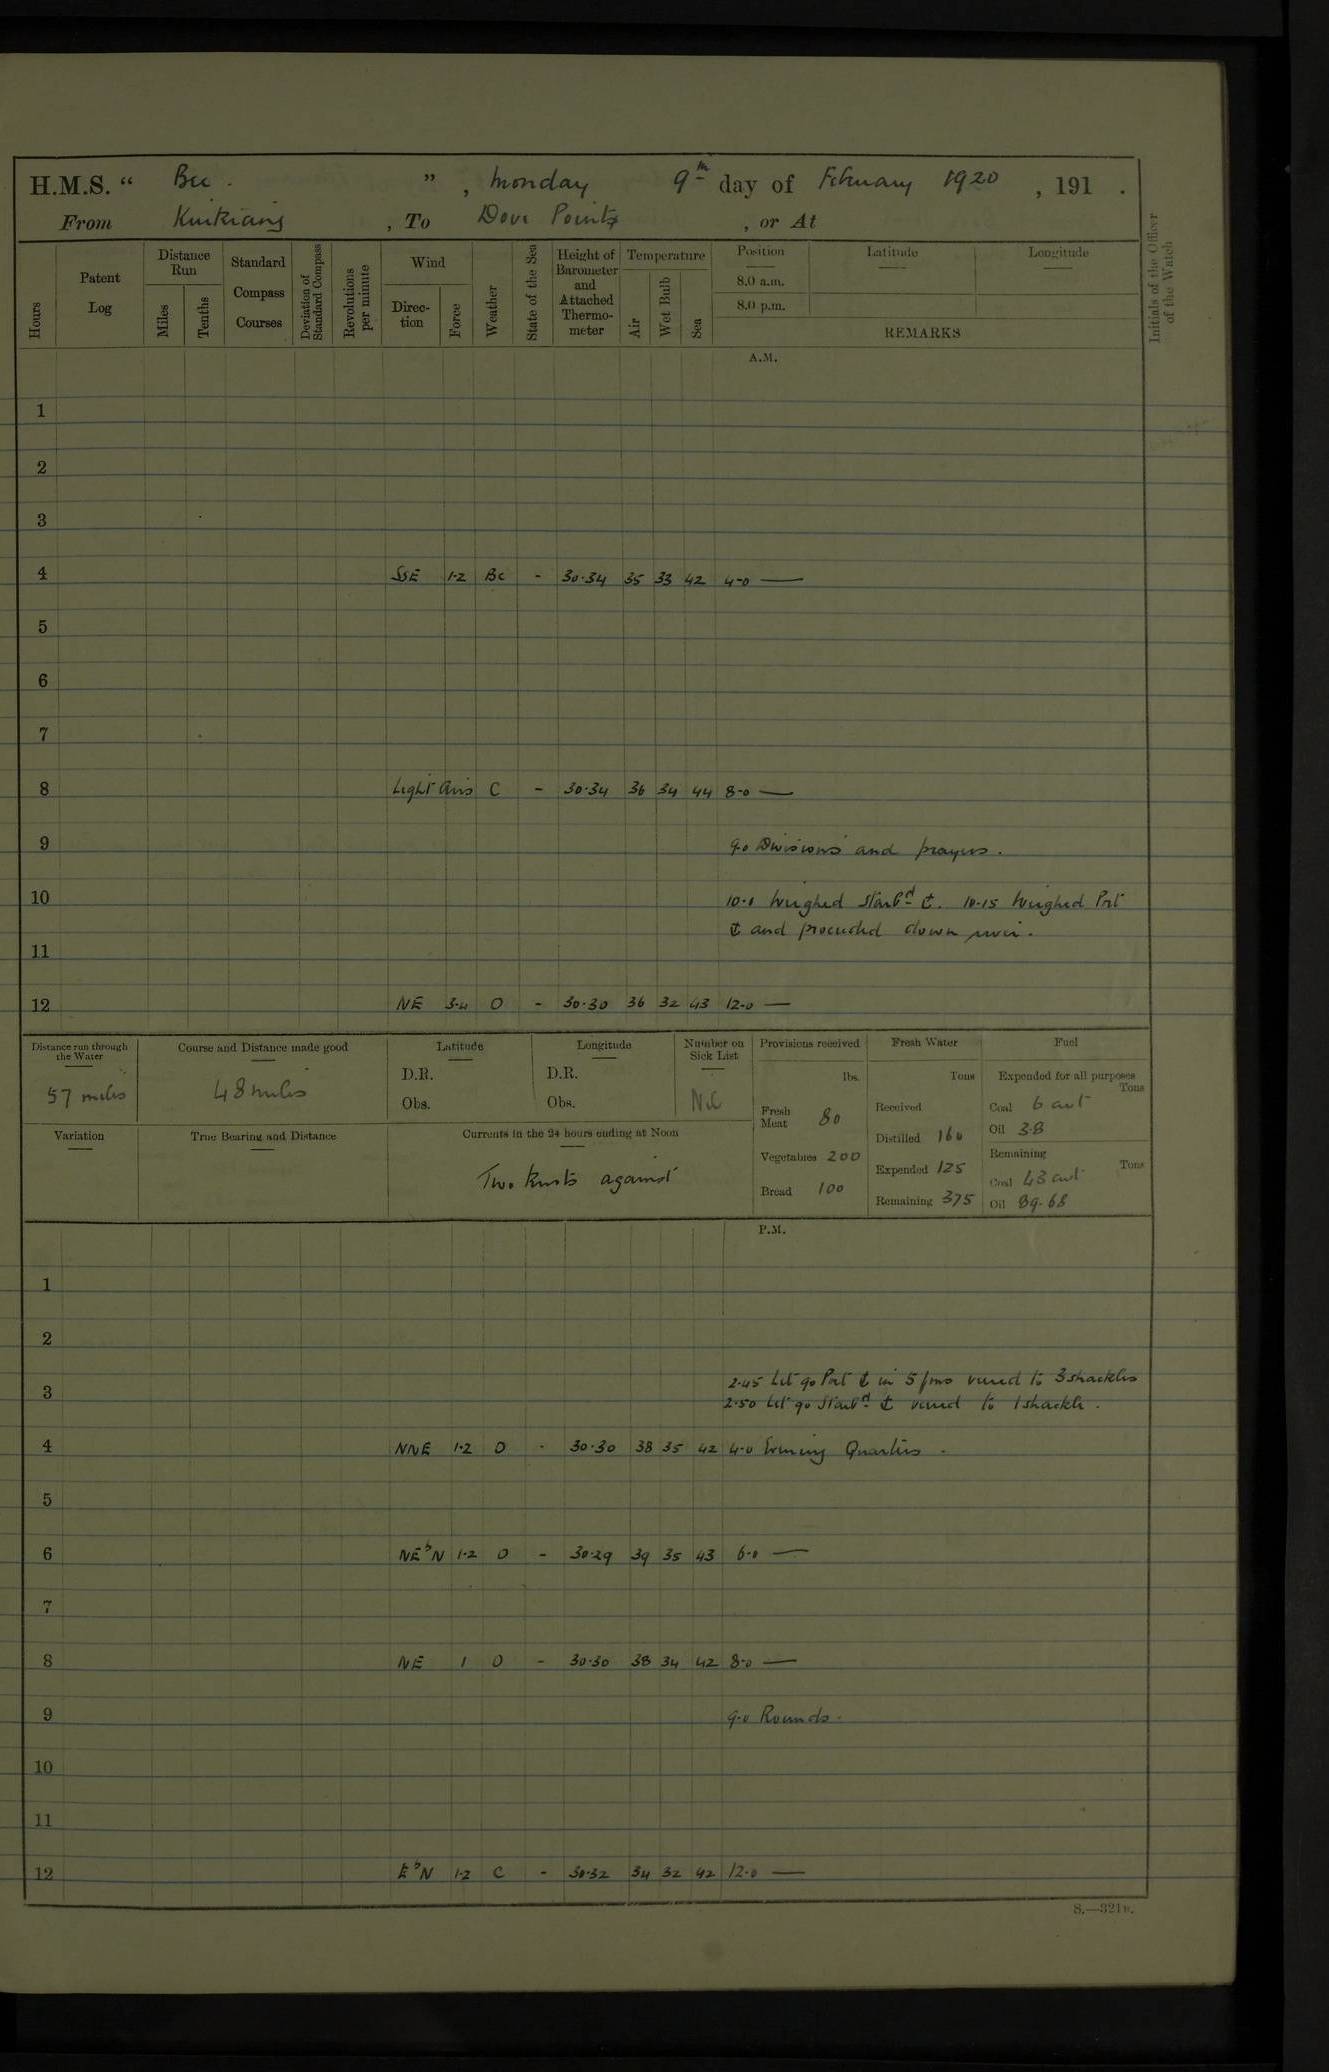 H.M.S. " Bee. ", Monday 9th day of February 1920, 191 .
From Kiukiang, To Dove Point, or At
Hours
Patent Log
Distance Run
Miles
Tenths
Standard Compass Courses
Deviation of Standard Compass
Revolutions per minute
Wind
Direction
Force
Weather
State of the Sea
Height of Barometer and Attached Thermometer
Temperature
Air
Wet Bulb
Sea
Position
8.0 a.m.
8.0 p.m.
Latitude
Longitude
REMARKS
Initials of the Officer of the Watch
A.M.
1
2
3
4 SSE 1·2 Bc - 30·34 35 33 42 4-0 —
5
6
7
8 Light airs C - 30·34 36 34 44 8-0 —
9 9-0 Divisions and prayers.
10 10-0 Weighed Starbd ⚓. 10-15 Weighed Port
⚓ and proceeded down river.
11
12 NE 3-4 O - 30·30 36 32 43 12-0 —
Distance run through the Water
57 miles
Course and Distance made good
48 miles
Latitude
D.R.
Obs.
Longitude
D.R.
Obs.
Number on Sick List
Nil
Provisions received
lbs.
Fresh Meat 80
Vegetables 200
Bread 100
Fresh Water
Tons
Received
Distilled 160
Expended 125
Remaining 375
Fuel
Expended for all purposes
Tons
Coal 6 cwt
Oil 3.8
Remaining
Tons
Coal 43 cwt
Oil 89.68
Variation
True Bearing and Distance
Currents in the 24 hours ending at Noon
Two knots against
P.M.
1
2
2-45 Let go Port ⚓ in 5 fms veered to 3 shackles
3 2-50 Let go Starbd ⚓ veered to 1 shackle.
4 NNE 1·2 O - 30·30 38 35 42 4-0 Evening Quarters.
5
6 NEbN 1·2 O - 30·29 39 35 43 6-0 —
7
8 NE 1 O - 30·30 38 34 42 8-0 —
9 9-0 Rounds.
10
11
12 EbN 1·2 C - 30·32 34 32 42 12-0 —